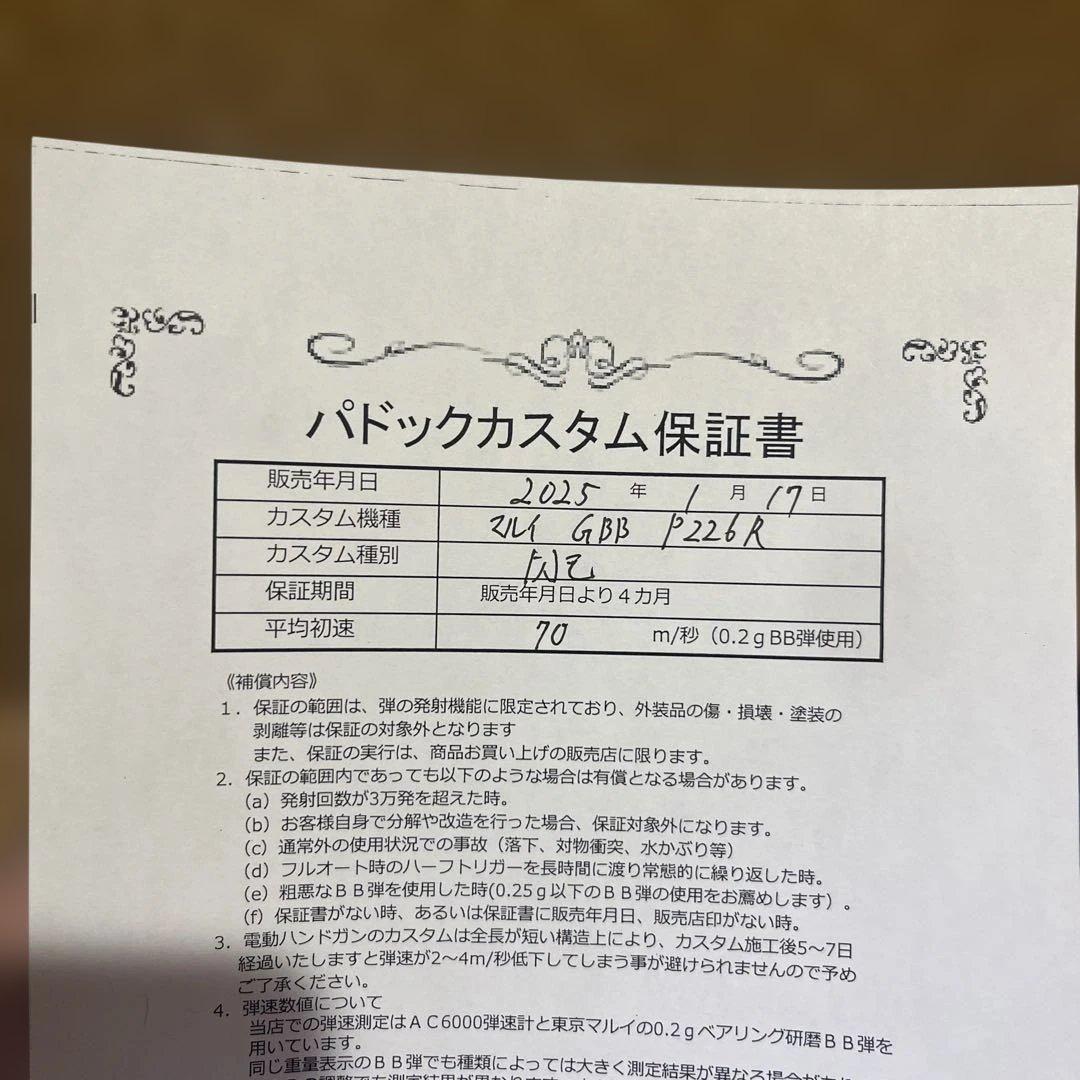 パドックカスタム保証書
販売年月日 2025 年 1 月 17 日
カスタム機種 マルイ GBB P226R
カスタム種別
保証期間 販売年月日より4カ月
平均初速 70 m/秒（0.2gBB弾使用）
《補償内容》
1．保証の範囲は、弾の発射機能に限定されており、外装品の傷・損壊・塗装の
剥離等は保証の対象外となります
また、保証の実行は、商品お買い上げの販売店に限ります。
2．保証の範囲内であっても以下のような場合は有償となる場合があります。
（a）発射回数が3万発を超えた時。
（b）お客様自身で分解や改造を行った場合、保証対象外になります。
（c）通常外の使用状況での事故（落下、対物衝突、水かぶり等）
（d）フルオート時のハーフトリガーを長時間に渡り常態的に繰り返した時。
（e）粗悪なＢＢ弾を使用した時(0.25ｇ以下のＢＢ弾の使用をお薦めします）。
（f）保証書がない時、あるいは保証書に販売年月日、販売店印がない時。
3．電動ハンドガンのカスタムは全長が短い構造上により、カスタム施工後5～7日
経過いたしますと弾速が2～4m/秒低下してしまう事が避けられませんので予め
ご了承ください。
4．弾速数値について
当店での弾速測定はＡＣ6000弾速計と東京マルイの0.2ｇベアリング研磨ＢＢ弾を
用いています。
同じ重量表示のＢＢ弾でも種類によっては大きく測定結果が異なる場合があり